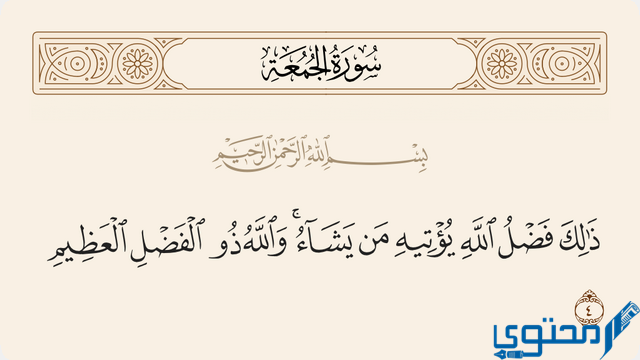 سُورَةُ الْجُمُعَةِ
بِسْمِ ٱللَّهِ ٱلرَّحْمَٰنِ ٱلرَّحِيمِ
ذَٰلِكَ فَضْلُ ٱللَّهِ يُؤْتِيهِ مَن يَشَآءُ ۚ وَٱللَّهُ ذُو ٱلْفَضْلِ ٱلْعَظِيمِ
٤
محتوى